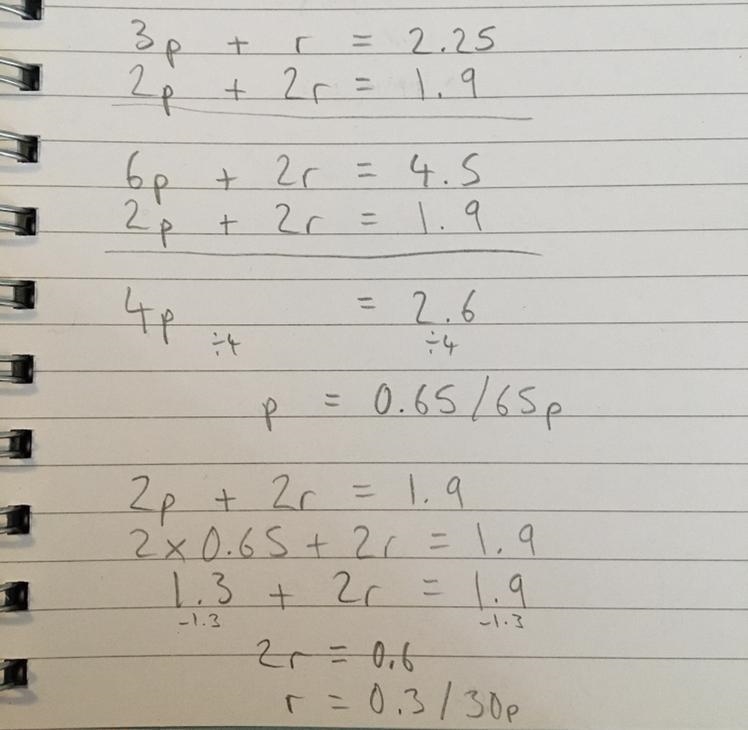 3p + r = 2.25
2p + 2r = 1.9
6p + 2r = 4.5
2p + 2r = 1.9
4p = 2.6
÷4 ÷4
p = 0.65/65p
2p + 2r = 1.9
2×0.65 + 2r = 1.9
1.3 + 2r = 1.9
-1.3 -1.3
2r = 0.6
r = 0.3/30p